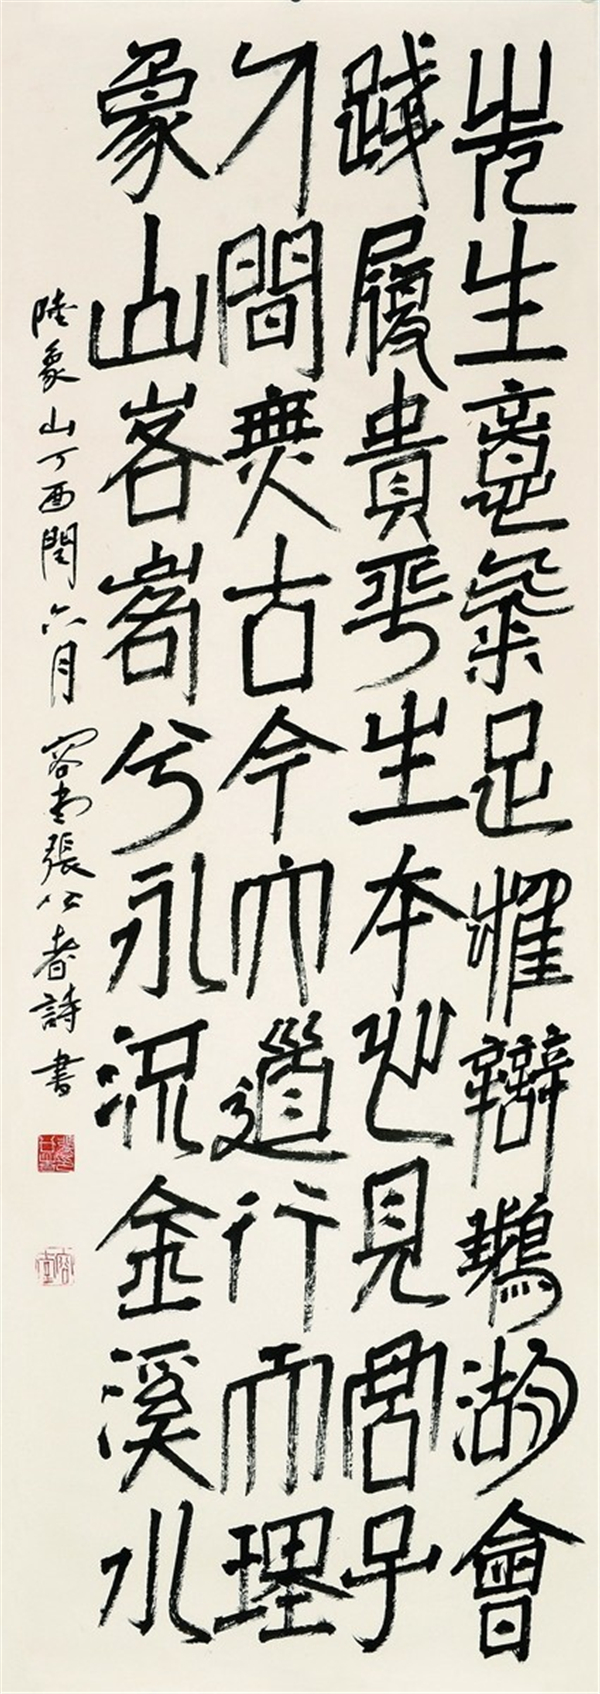 先生意氣足惟辯鵝湖會
踐履貴平生本心見君子
人間無古今大道行而理
象山峉兮永況金溪水
陸象山丁酉閏六月容堂張公者詩書
容堂